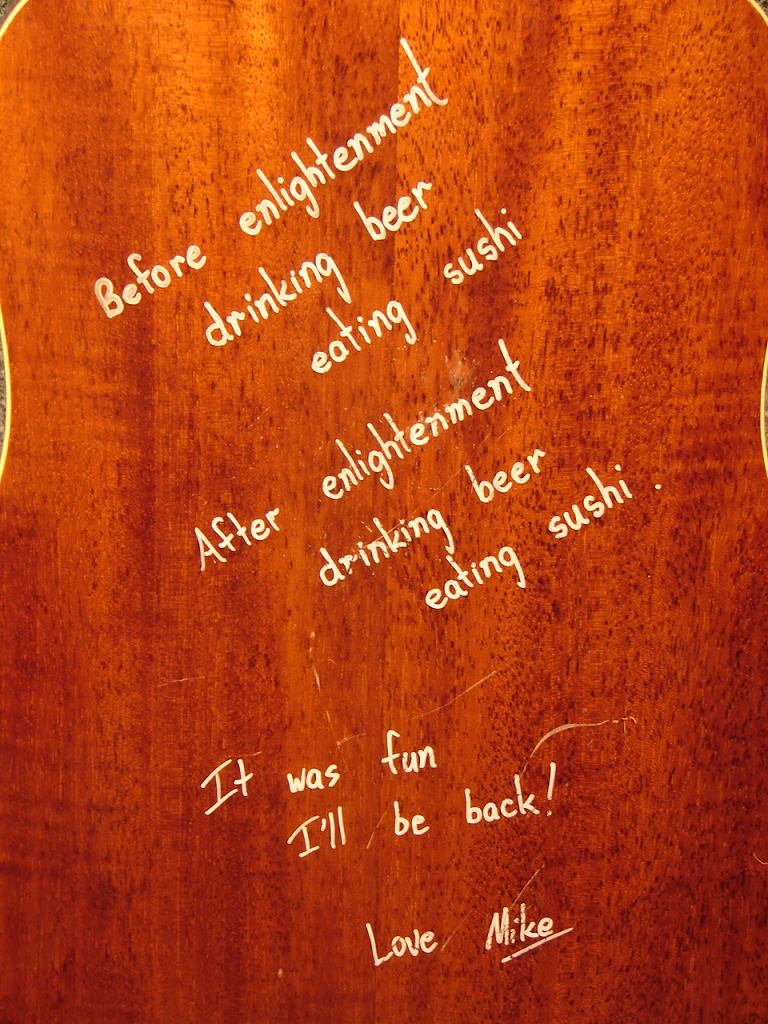 Before enlightenment
drinking beer
eating sushi
After enlightenment
drinking beer
eating sushi.
It was fun
I'll be back!
Love Mike